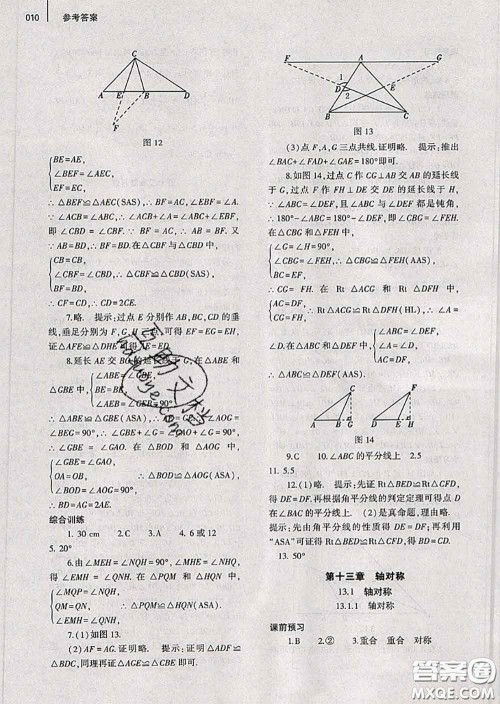 010 参考答案
C
A E B D
F
图 12
BE=AE,
∠BEF=∠AEC,
EF=EC,
∴ △BEF≌△AEC(SAS),∴ BF=AC, ∠EBF=∠A.
∵ AB=AC,∴ ∠ACB=∠ABC=∠ABC+∠EBF,
即 ∠CBD=∠CBF. ∵ BF=AC, ∴ AB=BF. 又
∵ AB=BD,∴ BF=BD. 在△CBF 与△CBD 中,
CB=CB,
∠CBF=∠CBD,
BF=BD,
∴ CF=CD,∴ CD=2CE.
7.略. 提示:过点 E 分别作 AB,BC,CD 的垂
线,垂足分别为 F,G,H 可得 EF=EG=EH,
证△AFE≌△DHE 可得AE=ED.
8.延长AE 交BC 的延长线于 G, 在△ABE 和
△GBE 中,
∠ABE=∠GBE,
BE=BE,
∠AEB=∠GEB=90°
∴ △ABE≌△GBE(ASA). ∠GOE+∠AOG=
∠BEG=90°, ∴ ∠GBE=∠GOE+∠G=90°,
∴ ∠GBE=∠GAO. 在△BOD 和△AOG 中,
∠GBE=∠GAO,
OA=OB,
∴ △BOD≌△AOG (ASA).
∴ BD=AG=2AE.
综合训练
1. 30 cm 2. C 3. A 4. 6或12
5. 20°
6.由∠MEH=∠NQH=90°,∠MHE=∠NHQ,
得 ∠EMH=∠QNH. 在 △PQM 和 △HQN 中,
∠MQP=∠NQH,
QM=QN,
∠EMH=∠QNH,
∴ △PQM≌△HQN(ASA).
7.(1)如图 13.
(2)AF=AG. 证明略. 提示:证明△ADF≌
△BDC,同理再证△AGE≌△CBE 可得.
F A G
1
D 2 E
B C
图 13
(3)点 F,A,G 三点共线.证明略. 提示:推出
∠BAC+∠FAD+∠GAE=180°即可.
8.如图14,过点 C 作 CG⊥AB 交 AB 的延长线
于 G,过点 F 作 FH⊥DE 交 DE 的延长线于 H,
∵ ∠ABC=∠DEF,且∠ABC,∠DEF 都是钝角,
∴ 180°-∠ABC=180°-∠DEF,即∠CBG=∠FEH.
在△CBG 和△FEH 中,
∠G=∠H=90°,
∠CBG=∠FEH, ∴ △CBG≌△FEH(AAS).
BC=EF,
∴ CG=FH. 在 Rt △ACG 和 Rt △DFH 中,
AC=DF,
CG=FH,
∴ Rt △ACG≌ Rt △DFH (HL), ∴ ∠A=∠D.
在△ABC 和△DEF 中,
∠ABC=∠DEF,
∠A=∠D,
AC=DF,
∴ △ABC≌△DEF(AAS).
C F
A B G D E H
图 14
9.C 10.∠ABC的平分线上 2.5
11. 5.5
12.(1)略. 提示:先证 Rt △BED≌Rt △CFD,
得 DE=DF.再根据角平分线的判定定理可得点 D
在∠BAC 的平分线上. (2)是真命题,理由略.
提示:先由角平分线的性质得 DE=DF; 再利用
“ASA”可证得Rt△BED≌Rt△CFD,得出BD=CD.
13. 50°
第十三章 轴对称
13.1 轴对称
13.1.1 轴对称
课前预习
1.B 2.② 3.重合 重合 对称
答案圈
MXQE.COM